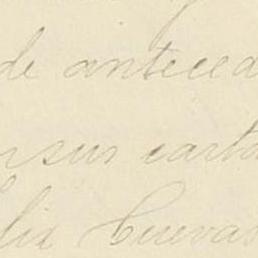 de anteced
n sus carta
lix Cuevas